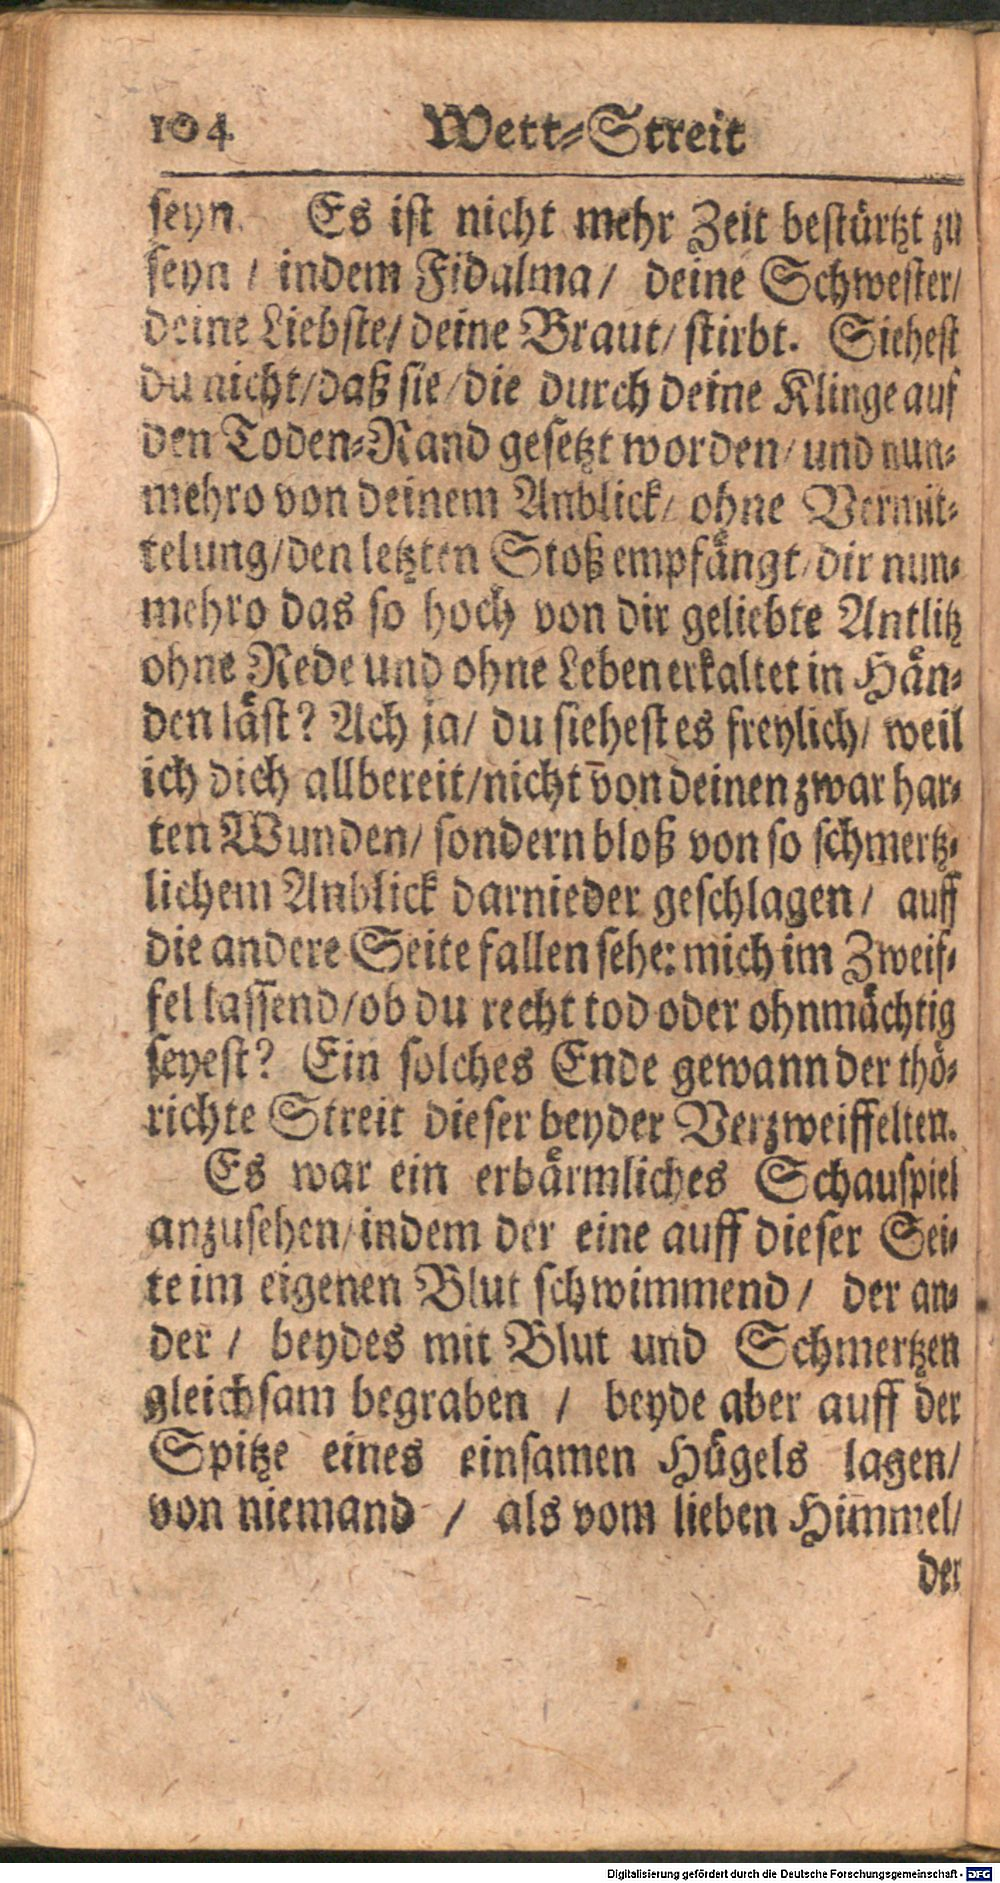 104 Wett-Streit
seyn. Es ist nicht mehr Zeit bestürtzt zu
seyn / indem Fidalma / deine Schwester/
deine Liebste/ deine Braut/ stirbt. Siehest
du nicht/daß sie/die durch deine Klinge auf
den Toden-Rand gesetzt worden/ und nun-
mehro von deinem Anblick/ ohne Vermit-
telung/den letzten Stoß empfängt/dir nun-
mehro das so hoch von dir geliebte Antlitz
ohne Rede und ohne Leben erkaltet in Hän-
den läst? Ach ja/ du siehest es freylich/ weil
ich dich allbereit/nicht von deinen zwar har-
ten Wunden/ sondern bloß von so schmertz-
lichem Anblick darnieder geschlagen/ auff
die andere Seite fallen sehe: mich im Zweif-
fel lassend/ob du recht tod oder ohnmächtig
seyest? Ein solches Ende gewann der thö-
richte Streit dieser beyder Verzweiffelten.
Es war ein erbärmliches Schauspiel
anzusehen/indem der eine auff dieser Sei-
te im eigenen Blut schwimmend / der an-
der / beydes mit Blut und Schmertzen
gleichsam begraben / beyde aber auff der
Spitze eines einsamen Hügels lagen/
von niemand / als vom lieben Himmel/
der
Digitalisierung gefördert durch die Deutsche Forschungsgemeinschaft - DFG